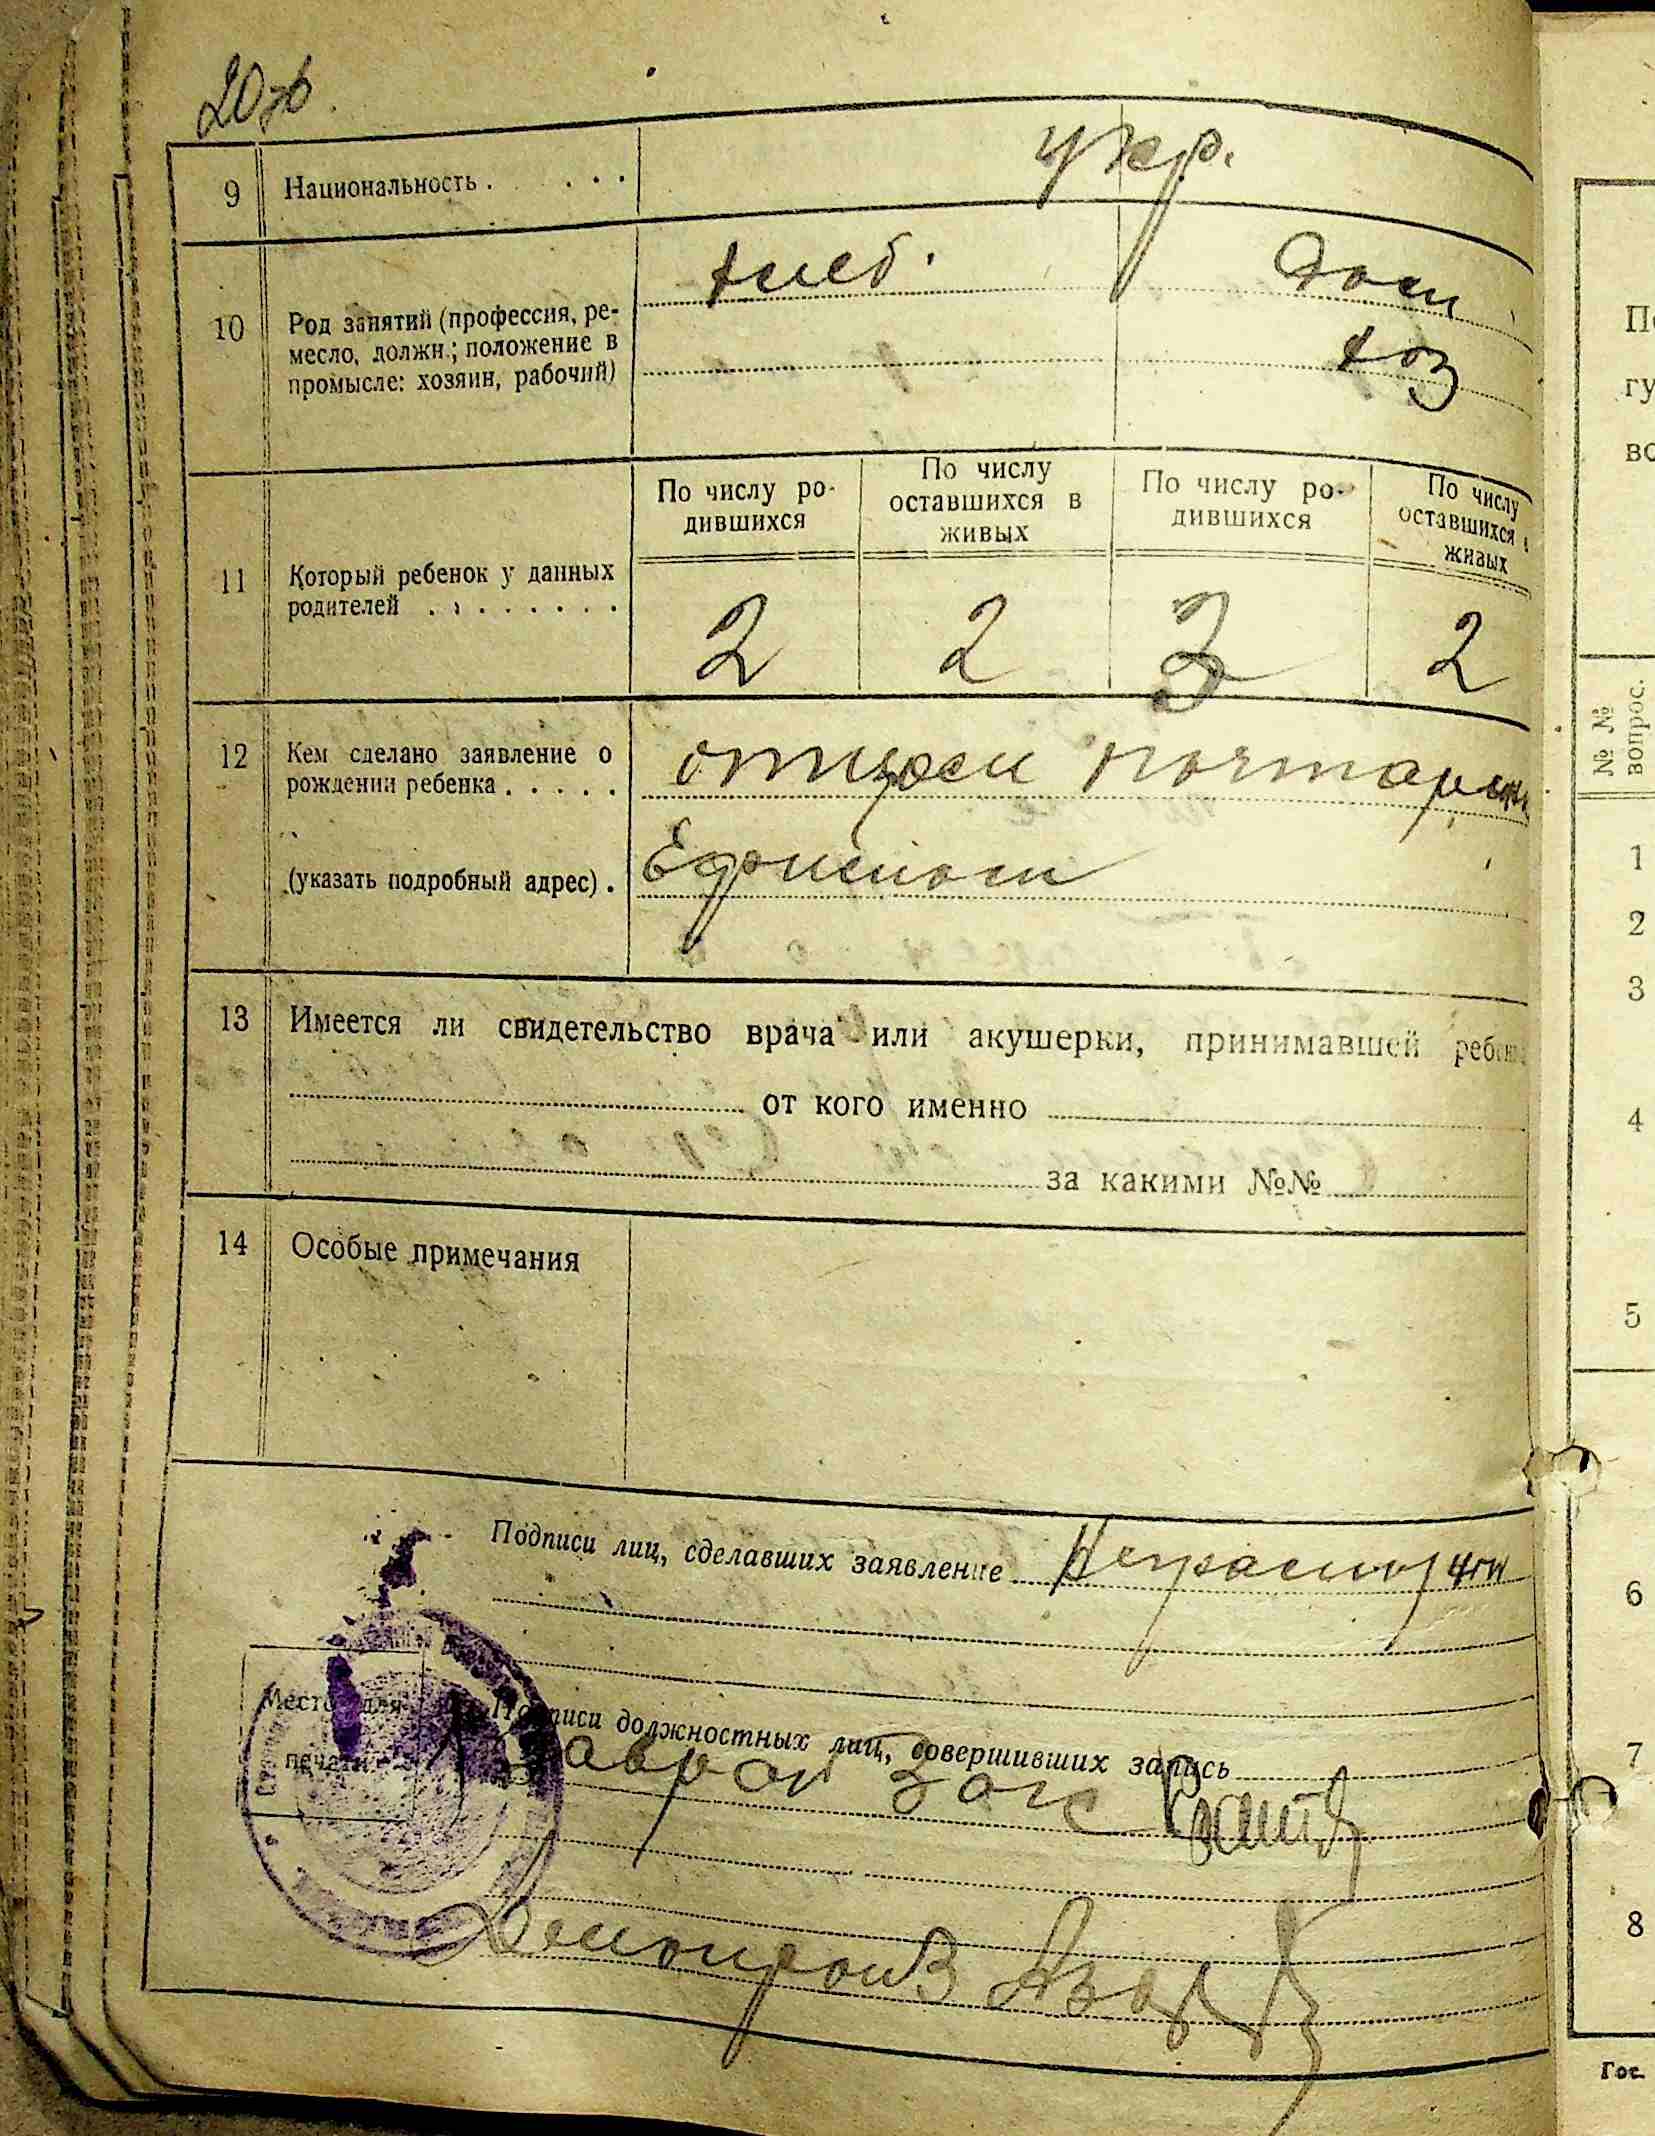 20 об.
9 Национальность . . . . . укр.
хлеб. Дом
10 Род занятий (профессия, ре-
месло, должн.; положение в хоз
промысле: хозяин, рабочий)
По числу ро-
дившихся
По числу
оставшихся в
живых
По числу ро-
дившихся
По числу
оставшихся в
живых
11 Который ребенок у данных
родителей . . . . . . . .
2 2 3 2
12 Кем сделано заявление о
рождении ребенка . . . . . отцом
(указать подробный адрес) . Ефимом
13 Имеется ли свидетельство врача или акушерки, принимавшей
от кого именно
за какими №№
14 Особые примечания
Подписи лиц, сделавших заявление Неграмотн
Место для
печати
Подписи должностных лиц, совершивших запись
Заврай Загс
Делопроизв
По
гу
во
№ №
вопрос.
1
2
3
4
5
6
7
8
Гос.